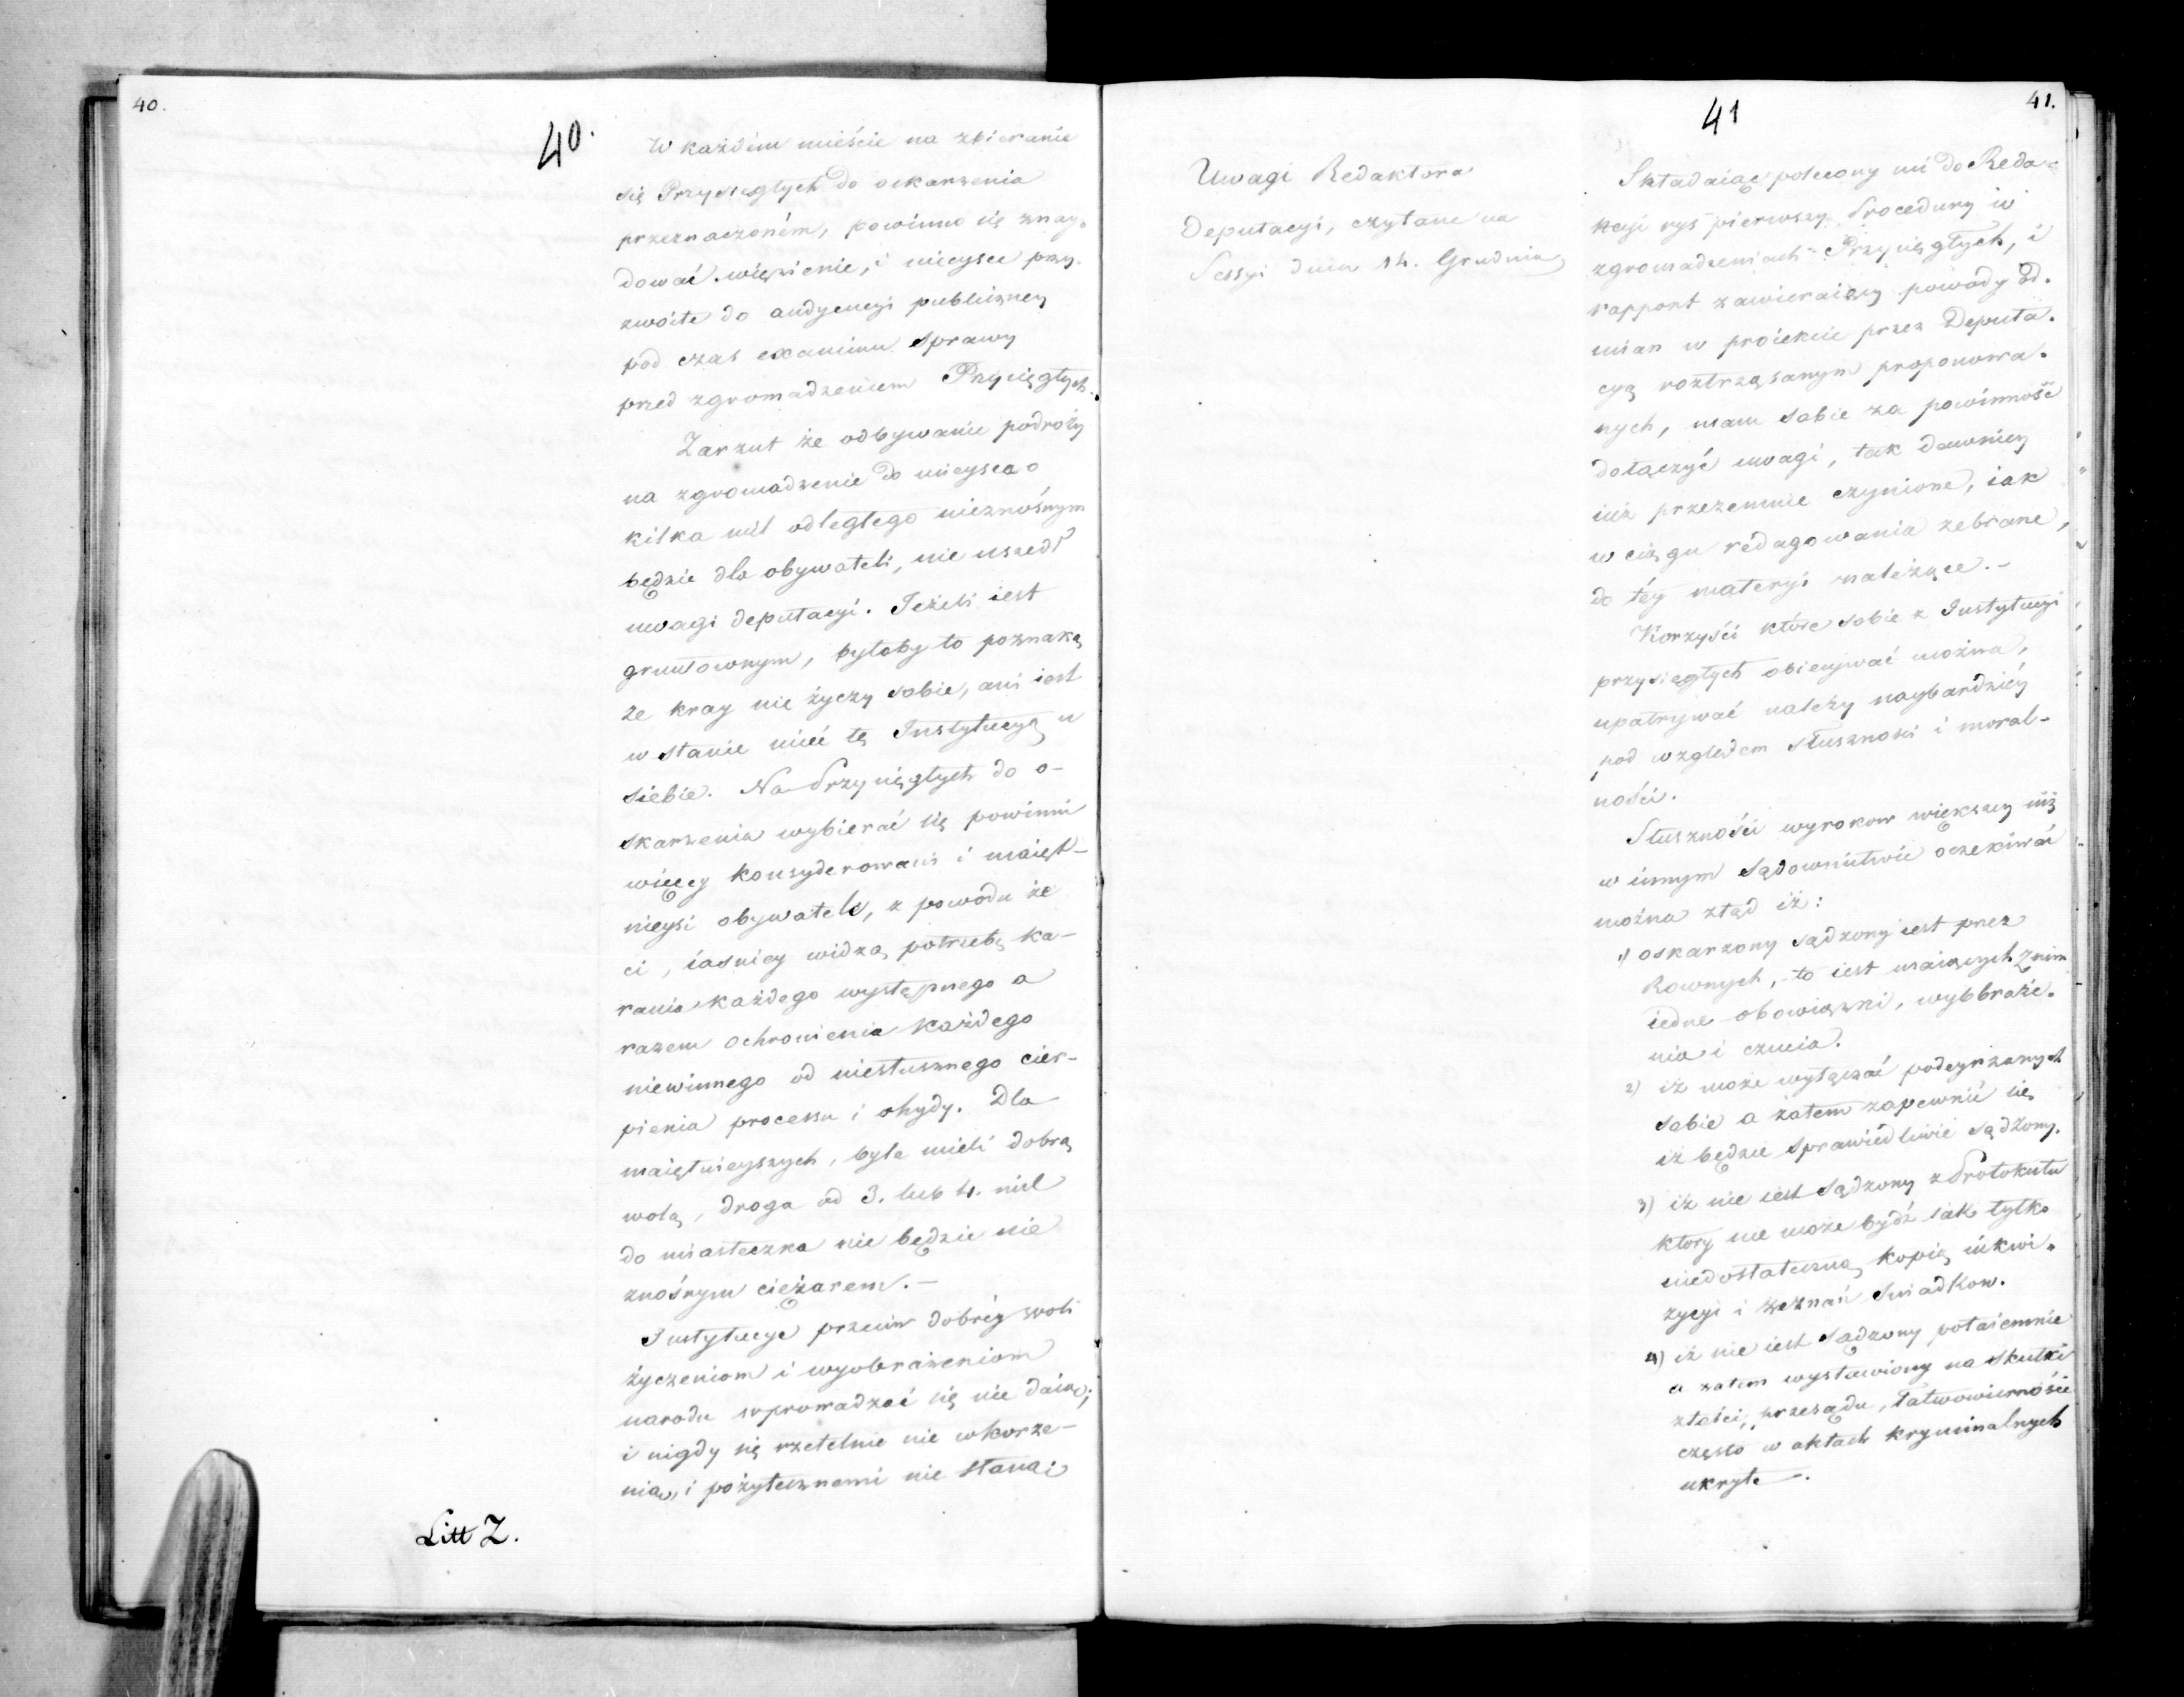 40.
40.
W każdém mieście na zbieranie
się Przysięgłych do oskarzenia
przeznaczoném, powinno się znay-
dować więzienie, i mieysce przy-
zwoite do audyencyi publiczney
pod czas examinu sprawy
przed zgromadzeniem Przysięgłych.
Zarzut że odbywanie podroży
na zgromadzenie do mieysca o
kilka mil odległego nieznośnym
będzie dla obywateli, nie uszedł
uwagi deputacyi. Jeżeli iest
gruntownym, byłoby to poznaką
że kray nie życzy sobie, ani iest
w stanie mieć tę Instytucyą u
siebie. Na Przysięgłych do o-
skarzenia wybierać się powinni
więcey konsyderowani i maięt-
nieysi obywatele, z powodu że
ci, iaśniey widzą potrzebę ka-
rania każdego występnego a
razem ochronienia każdego
niewinnego od niesłusznego cier-
pienia processu i ohydy. Dla
maiętnieyszych, byle mieli dobrą
wolą, droga od 3. lub 4. mil
do miasteczka nie będzie nie
znośnym cieżarem. –
Instytucye przeciw dobréy woli
życzeniom i wyobrażeniom
narodu wprowadzać się nie daią;
i nigdy się rzetelnie nie wkorze-
nią, i pożytecznemi nie staną
Litt Z.
41
41.
Uwagi Redaktora
Deputacyi, czytane na
Sessyi dnia 14. Grudnia
Składaiąc polecony mi do Reda-
kcyi rys pierwszy Procedury w
zgromadzeniach Przysięgłych, i
rapport zawieraiący powody od-
mian w proiekcie przez Deputa-
cyą roztrząsanym proponowa-
nych, mam sobie za powinność
dołączyć uwagi, tak dawniey
iuż przezemnie czynione, iak
w ciągu redagowania zebrane,
do téy materyi należące. –
Korzyści które sobie z Instytucyi
przysięgłych obiecywać można,
upatrywać należy naybardziéy
pod względem słuszności i moral-
ności.
Słuszności wyrokow większey niż
w innym sądownictwie oczekiwać
można ztąd iż:
1) oskarzony sądzony iest przez
Rownych, to iest maiących z nim
iedne obowiązki, wyobraże-
nia i czucia.
2) iż może wyłączać podeyrzanych
sobie a zatem zapewnić się
iż będzie sprawiedliwie sądzony.
3) iż nie iest sądzony z Protokułu
ktory nie może bydź iak tylko
niedostateczną kopią inkwi-
zycyi i zeznań Swiadkow.
4) iż nie iest sądzony potaiemnie
a zatem wystawiony na skutki
złości, przesądu, łatwowierności
często w aktach kryminalnych
ukryte –.